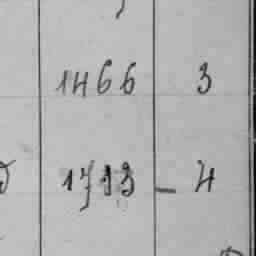 1466 3
1713 - 4